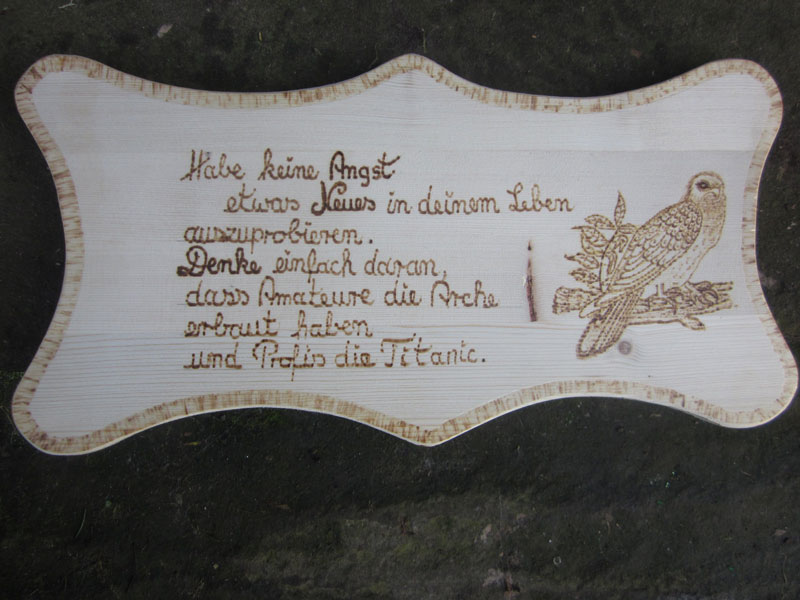 Habe keine Angst
etwas Neues in deinem Leben
auszuprobieren.
Denke einfach daran,
dass Amateure die Arche
erbaut haben
und Profis die Titanic.